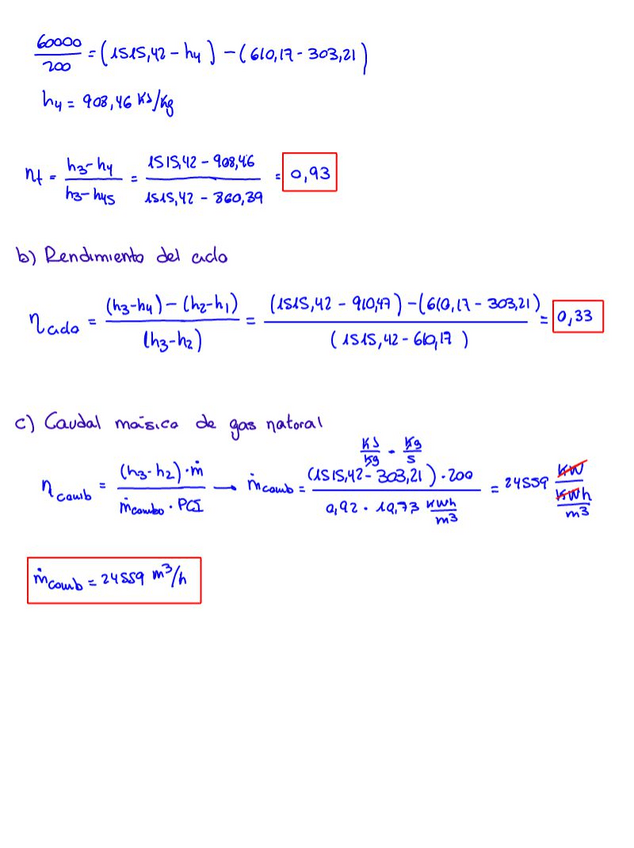 60000/200 = (1515,42 - h4) - (610,17 - 303,21)
h4 = 908,46 KJ/Kg
ηt = (h3-h4)/(h3-h4s) = (1515,42 - 908,46)/(1515,42 - 860,39) = 0,93
b) Rendimiento del ciclo
ηciclo = ((h3-h4) - (h2-h1))/(h3-h2) = ((1515,42 - 910,47) - (610,17 - 303,21))/(1515,42 - 610,17) = 0,33
c) Caudal másico de gas natural
KJ/Kg · Kg/s
ηcomb = ((h3-h2)·ṁ)/(ṁcombo · PCI) → ṁcomb = ((1515,42 - 303,21)·200)/(0,92 · 10,73 KWh/m3) = 24559 KW/(KWh/m3)
ṁcomb = 24559 m³/h